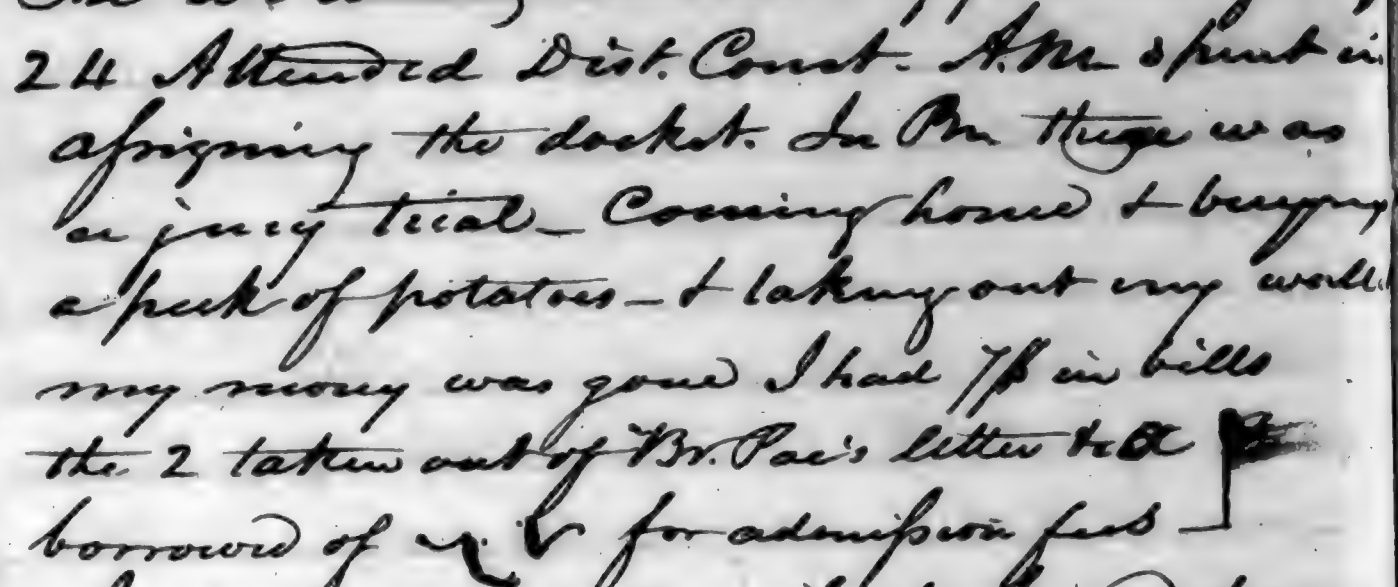 24 Attended Dist. Court. A.M. spent in
assigning the docket. In P.M. there was
a jury trial – Coming home & buying
a peck of potatoes – & taking out my
my money was gone I had 7$ in bills
the 2 taken out of Br. letter &
borrowed of for admission fees –